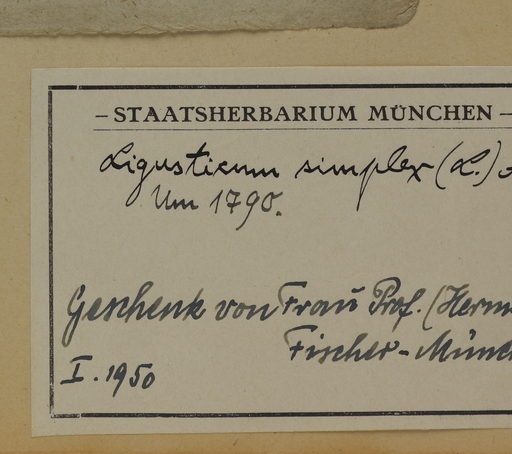 – STAATSHERBARIUM MÜNCHEN –
Ligusticum simplex (L.)
Um 1790.
Geschenk von Frau Prof. (Herm
Fischer-Münc
I. 1950